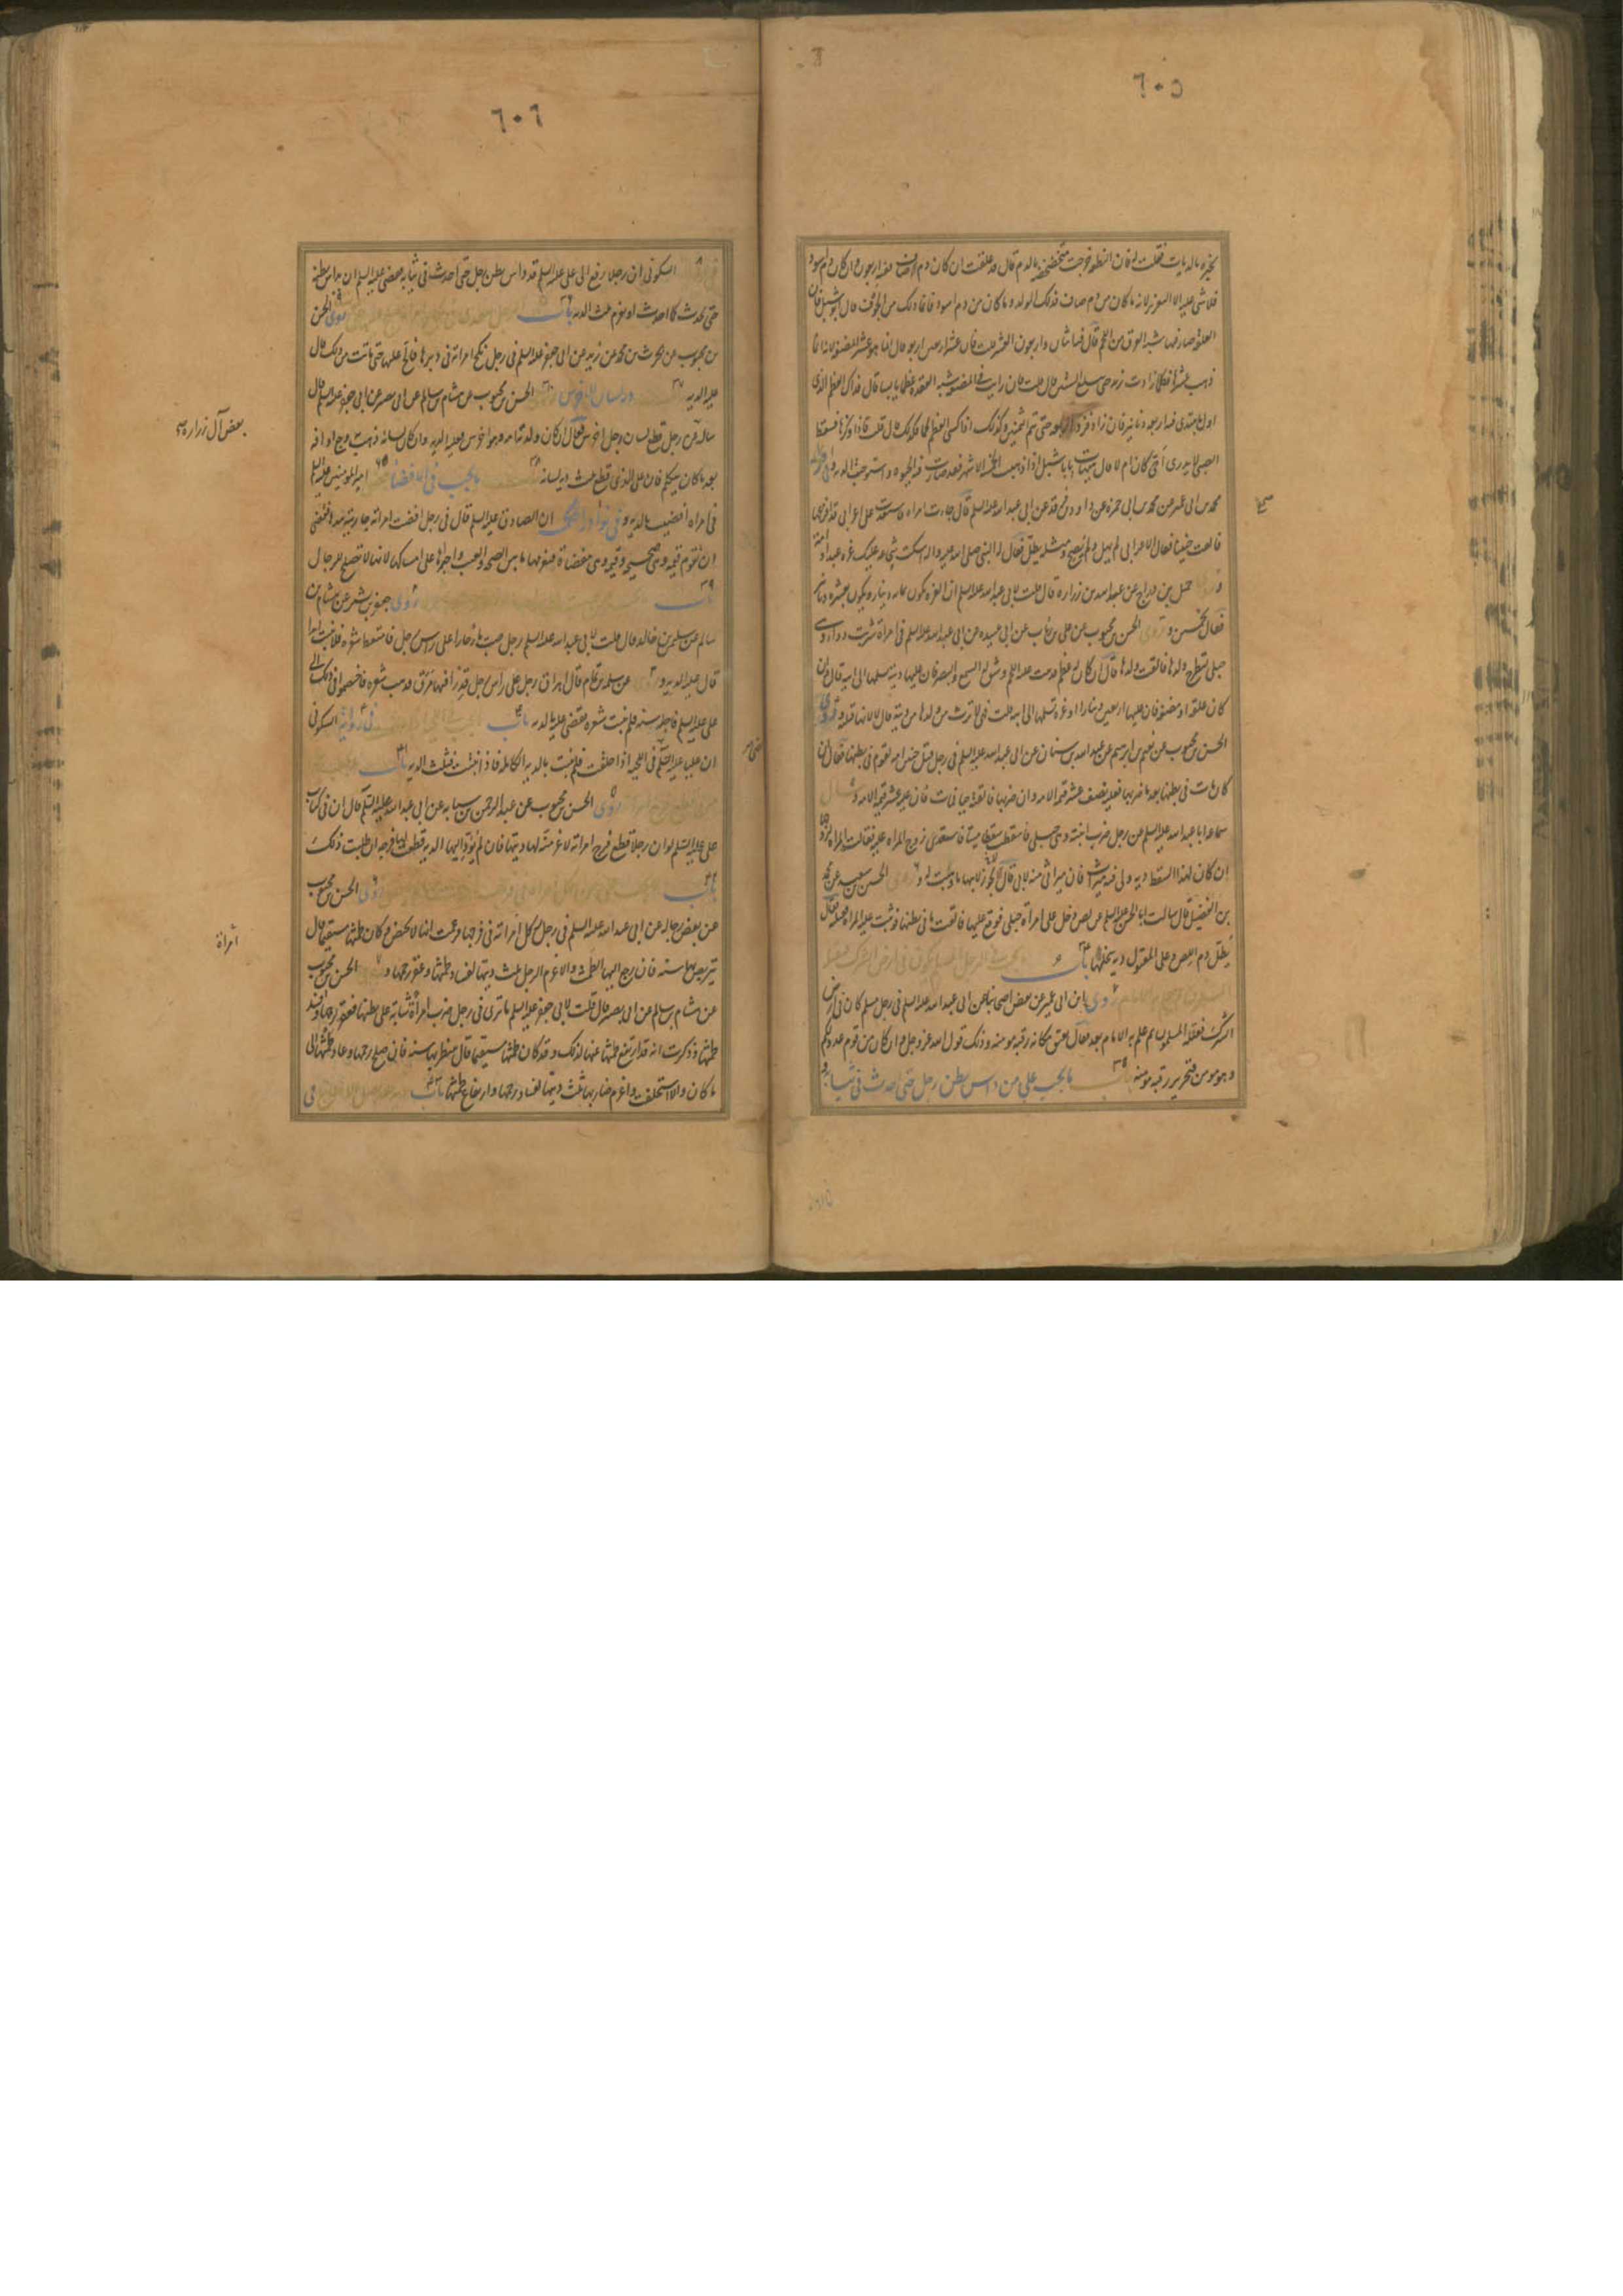 ٦٠٥
يخبره بالديات فقلت له فان النطفة خرجت متخضخضة بالدم قال قد علقت ان كان دم صاف ففيه اربعون وان كان دم اسود
فلا شي عليه الا التعزير لانه ما كان من دم صاف فذلك للولد وما كان من دم اسود فانما ذلك من الجوف قال ابو شبل فان
العلقة صار فيها شبه العرق من اللحم قال فيه اثنان واربعون العشر قلت فان عشر اربعين اربعة قال انما هو عشر المضغة لانه انما
ذهب عشرها فكلما زادت زيد حتى تبلغ الستين قال قلت فان رايت في المضغة شبه العقدة عظما يابسا قال فذاك العظم الذي
اول ما يبتدى ففيه اربعة دنانير فان زاد فزد اربعة حتى تتم الثمنين وكذلك اذا كسى العظم لحما كذلك قال قلت فاذا وكزها فسقط
الصبي لا يدرى احى كان ام لا قال هيهات يا با شبل اذا ذهبت الخمسة الاشهر فقد صارت فيه الحيوة واستوجب الدية وفي رواية
محمد بن ابي عمير عن محمد بن ابي حمزه عن داود بن فرقد عن ابي عبد الله عليه السلم قال جاءت امراة فاستعدت على اعرابي قد افزعها
فالقت جنينا فقال الاعرابي لم يهل ولم يصح ومثله يطل فقال له النبي صلى الله عليه واله اسكت سجاعة عليك غرة عبد او امة
و روى جميل بن دراج عن عبيد بن زرارة قال قلت لابي عبد الله عليه السلم ان الغرة تكون بمائة دينار وتكون بعشرة دنانير
فقال بخمسين وروى الحسن بن محبوب عن على بن رئاب عن ابي عبيدة عن ابي عبد الله عليه السلم في امراة شربت دواء وهي
حبلى لتطرح ولدها فالقت ولدها قال ان كان له عظم قد نبت عليه اللحم وشق له السمع والبصر فان عليها دية تسلمها الى ابيه قال وان
كان علقة او مضغة فان عليها اربعين دينارا او غرة تسلمها الى ابيه قلت فهي لا ترث من ولدها من ديته قال لا لانها قتلته وروى
الحسن بن محبوب عن نعيم بن ابرهيم عن عبد الله بن سنان عن ابي عبد الله عليه السلم في رجل قتل جنين امة لقوم في بطنها فقال ان
كان مات في بطنها بعد ما ضربها فعليه نصف عشر قيمة الامة وان ضربها فالقته حيا فمات فان عليه عشر قيمة الامة وسال
سماعة ابا عبد الله عليه السلم عن رجل ضرب ابنته وهي حبلى فاسقطت سقطا ميتا فاستعدى زوج المراة عليه فقالت المراة لزوجها
ان كان لهذا السقط دية ولي فيه ميراث فان ميراثي منه لابي قال يجوز لابيها ما وهبت له وروى الحسن بن سعيد عن محمد
بن الفضيل قال سالت ابا الحسن عليه السلم عن لص دخل على امراة حبلى فوقع عليها فالقت ما في بطنها فوثبت عليه المراة فقتلته فقال
يطل دم اللص وعلى المقتول دية سخلتها باب ما يجب في الرجل المسلم يكون في ارض الشرك فيقتله
المسلمون ثم يعلم به الامام روى ابن ابي عمير عن بعض اصحابنا عن ابي عبد الله عليه السلم في رجل مسلم كان في ارض
الشرك فقتله المسلمون ثم علم به الامام بعد فقال يعتق مكانه رقبة مومنة وذلك قول الله عز وجل وان كان من قوم عدو لكم
وهو مومن فتحرير رقبة مومنة باب ما يجب على من داس بطن رجل حتى احدث في ثيابه
٦٠٦
في رواية السكوني ان رجلا رفع الى على عليه السلم قد داس بطن رجل حتى احدث في ثيابه فقضى عليه السلم ان يداس بطنه
حتى يحدث كما احدث او يغرم ثلث الدية باب روى الحسن
بن محبوب عن الحرث بن محمد عن زيد عن ابي جعفر عليه السلم في رجل نكح امراته في دبرها فالح عليها حتى ماتت من ذلك قال
عليه الدية باب دية لسان الاخرس روى الحسن بن محبوب عن هشام بن سالم عن ابي بصير عن ابي جعفر عليه السلم قال
ساله بعض آل زرارة عن رجل قطع لسان رجل اخرس فقال ان كان ولدته امه وهو اخرس فعليه الدية وان كان لسانه ذهب بوجع او افة
بعد ما كان يتكلم فان على الذي قطع ثلث دية لسانه باب ما يجب في الافضاء قضى امير المومنين عليه السلم
في امراة افضيت بالدية وفي نوادر الحكمة ان الصادق عليه السلم قال في رجل افضت امراته جاريته بيدها فقضى
ان تقوم قيمة وهي صحيحة وقيمة وهي مفضاة فيغرمها ما بين الصحة والعيب واجبرها على امساكها لانها لا تصلح للرجال
باب روى جعفر بن بشير عن هشام بن
سالم عن سليمن بن خالد قال قلت لابي عبد الله عليه السلم رجل صب ماء حارا على راس رجل فامتعط شعره فلا ينبت ابدا
قال عليه الدية وروى عن سلمة بن تمام قال اهراق رجل على راس رجل قدرا فيها مرق فذهب شعره فاختصموا في ذلك الى
على عليه السلم فاجله سنة فلم ينبت شعره فقضى عليه بالدية باب ما يجب في اللحية اذا حلقت في رواية السكوني
ان عليا عليه السلم قضى في اللحية اذا حلقت فلم تنبت بالدية الكاملة فاذا نبتت فثلث الدية باب ما يجب على
من قطع فرج امراته روى الحسن بن محبوب عن عبد الرحمن بن سيابه عن ابي عبد الله عليه السلم قال ان في كتاب
على عليه السلم لو ان رجلا قطع فرج امراته لاغرمته لها ديتها فان لم يؤد اليها الدية قطعت لها فرجه ان طلبت ذلك
باب روى الحسن بن محبوب
عن بعض رجاله عن ابي عبد الله عليه السلم في رجل ركل امراته في فرجها فزعمت انها لا تحيض وكان طمثها مستقيما قال
يتربص بها سنة فان رجع اليها الطمث والا غرم الرجل ثلث ديتها لفساد طمثها وعقر رحمها وروى الحسن بن محبوب
عن هشام بن سالم عن ابي بصير قال قلت لابي جعفر عليه السلم ما ترى في رجل ضرب امراة شابة على بطنها فعقر رحمها وافسد
طمثها وذكرت انه قد ارتفع طمثها عنها لذلك وقد كان طمثها مستقيما قال ينظر بها سنة فان صلح رحمها وعاد طمثها الى
ما كان والا استحلفت واغرم ضاربها ثلث ديتها لفساد رحمها وارتفاع طمثها باب في
بعض آل زرارة
امراة